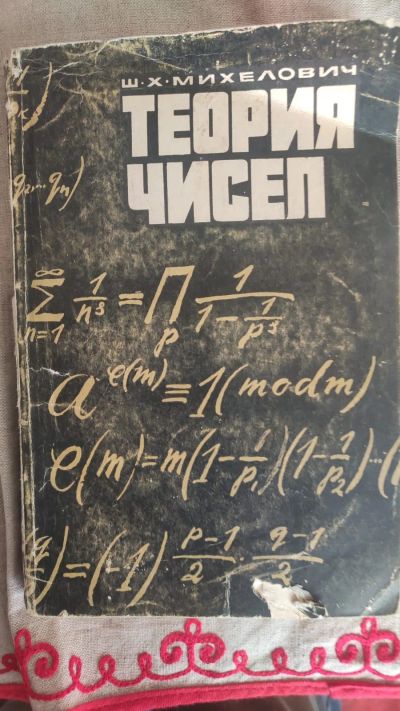 Ш·Х·МИХЕЛОВИЧ
ТЕОРИЯ
ЧИСЕЛ
q₂...qₘ)
∞ ∑ n=1 1/n³ = ∏ p 1/(1 - 1/p³)
a^φ(m) ≡ 1 (mod m)
φ(m) = m(1 - 1/p₁)(1 - 1/p₂)...(
) = (-1) p-1/2 · q-1/2